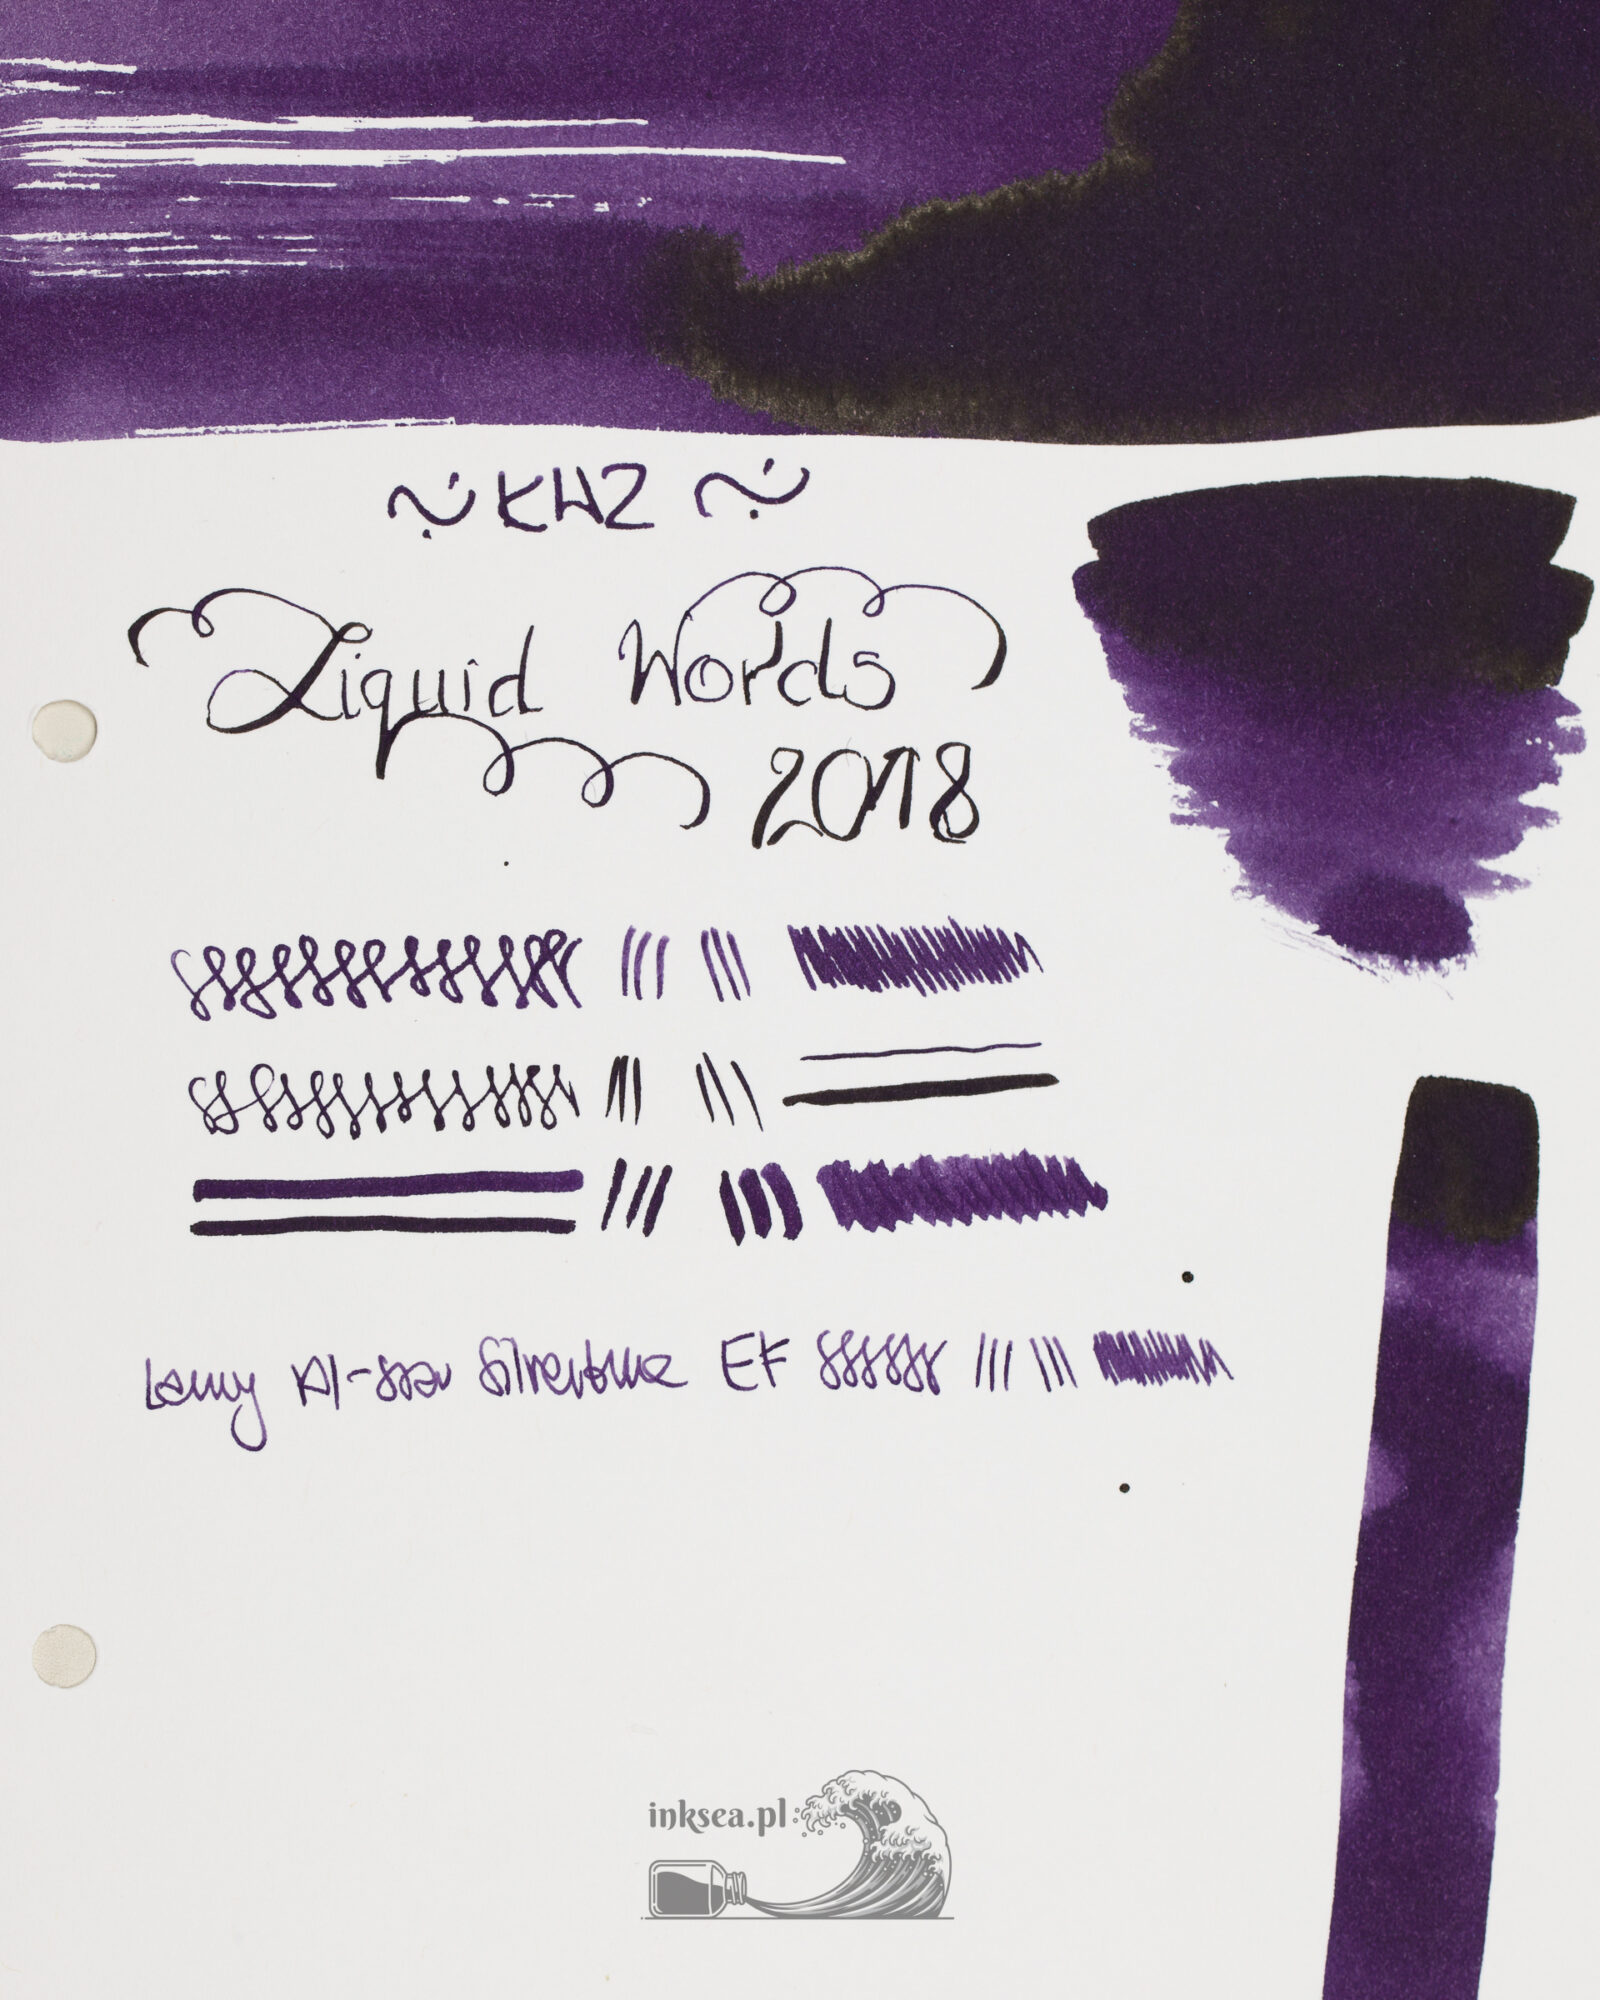 KWZ
Liquid Words
2018
Lamy Al-star Silvertone EF
inksea.pl